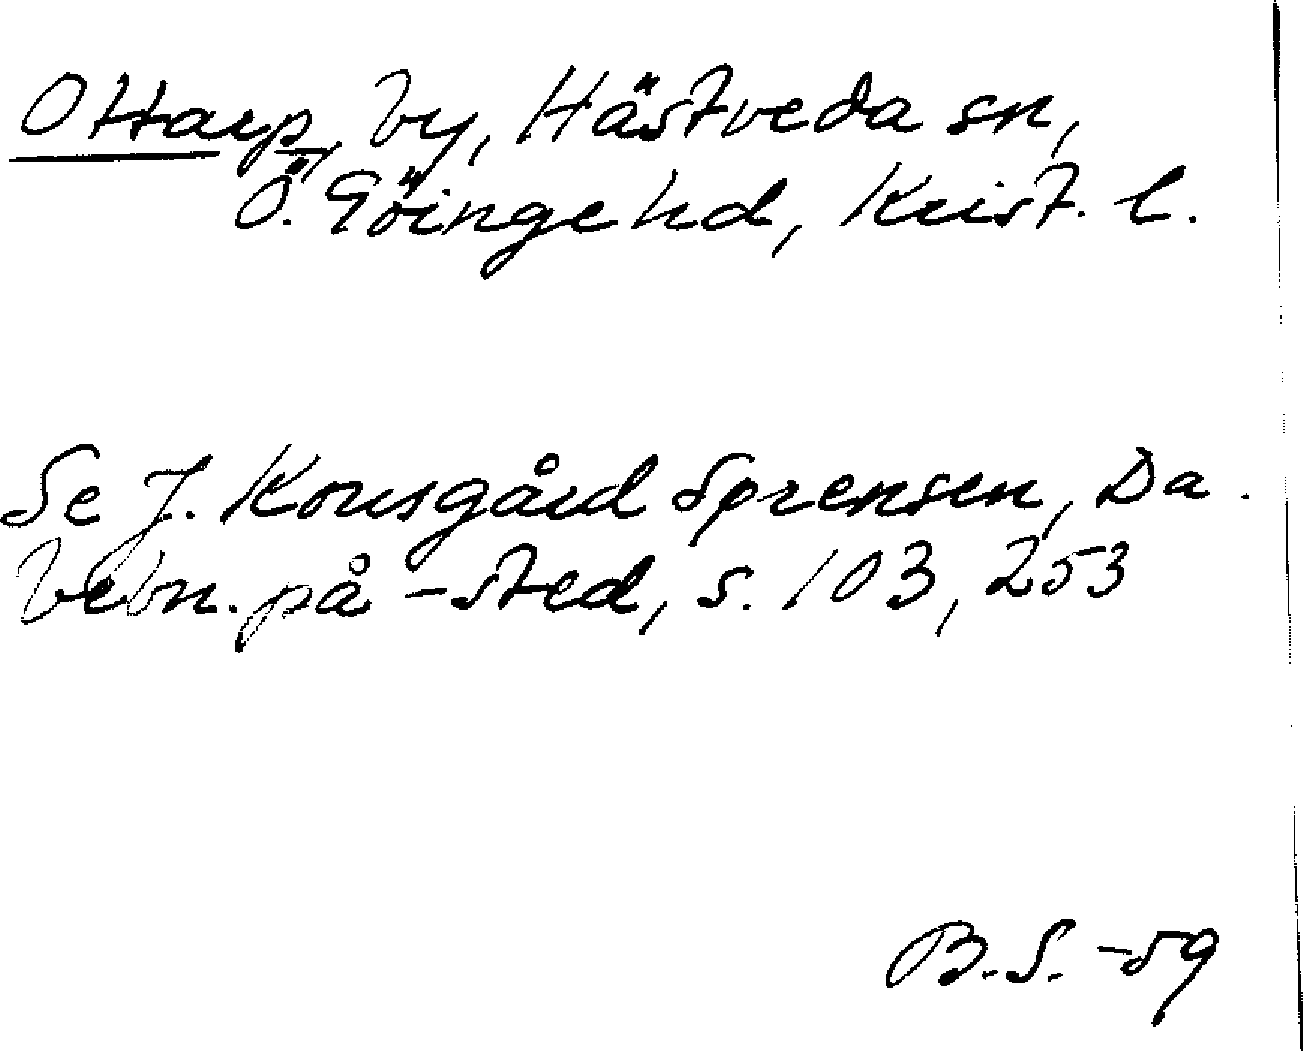 Ottarp, by, Hästveda sn,
Ö. Göinge hd, Krist. l.
Se J. Kousgård Sørensen, Da.
bebn. på -sted, s. 103, 253
B.S. -59